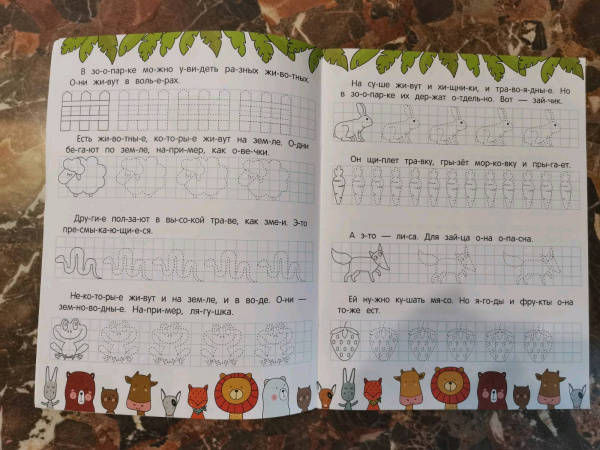 В зо-о-пар-ке мо-жно у-ви-деть ра-зных жи-во-тных.
О-ни жи-вут в воль-е-рах.
Есть жи-во-тны-е, ко-то-ры-е жи-вут на зем-ле. О-дни
бе-га-ют по зем-ле, на-при-мер, как о-ве-чки.
Дру-ги-е пол-за-ют в вы-со-кой тра-ве, как зме-и. Э-то
пре-смы-ка-ю-щи-е-ся.
Не-ко-то-ры-е жи-вут и на зем-ле, и в во-де. О-ни —
зем-но-во-дны-е. На-при-мер, ля-гу-шка.
На су-ше жи-вут и хи-щни-ки, и тра-во-я-дны-е. Но
в зо-о-пар-ке их дер-жат о-тдель-но. Вот — зай-чик.
Он щи-плет тра-вку, гры-зёт мор-ко-вку и пры-га-ет.
А э-то — ли-са. Для зай-ца о-на о-па-сна.
Ей ну-жно ку-шать мя-со. Но я-го-ды и фру-кты о-на
то-же ест.